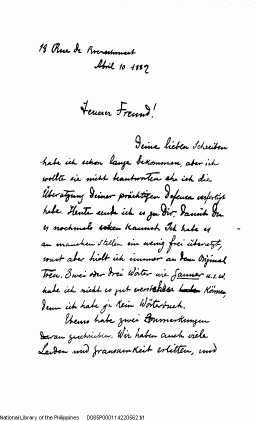 18 Rue de Rocrechouart
Abril 10 1889
Teurer Freund!
Deine lieben Schreiben
habe ich schon lange bekommen, aber ich
wollte sie nicht beantworten ehe ich die
Übersetzung Deiner prächtigen Defensa verfertigt
habe. Heute sende ich es zu Dir, damit Du
es nochmals sehen kannst. Ich habe es
an manchen Stellen ein wenig frei übersetzt,
sonst aber hielt ich immer an dem Original
treu. Zwei oder drei Wörter wie u.s.w.
habe ich nicht so gut können,
denn ich habe ja kein Wörterbuch.
Ebenso habe zwei Anmerkungen
daran geschrieben. Wir haben auch viele
Leiden und Grausamkeit erlitten, und
National Library of the Philippines D085P00011422056(2)d1